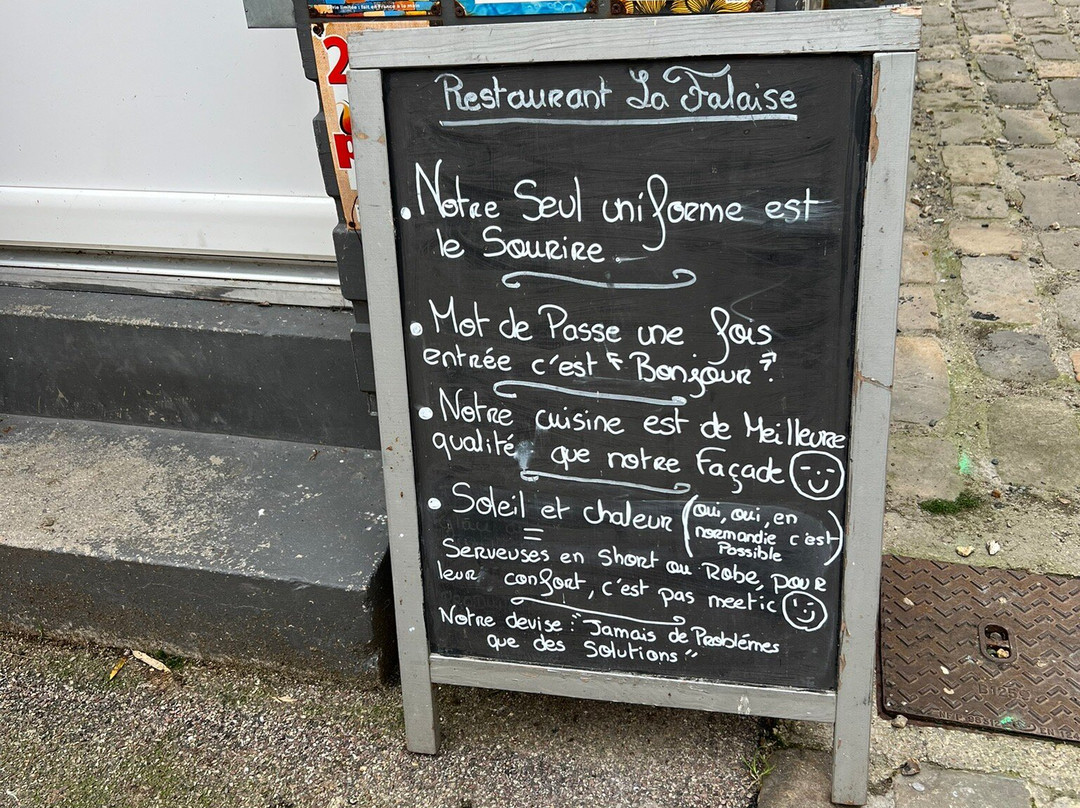 série limitée : fait en France à la main
2
P
Restaurant La Falaise
• Notre Seul uniforme est
le Sourire
• Mot de Passe une fois
entrée c'est "Bonjour".
• Notre cuisine est de Meilleure
qualité que notre Façade
• Soleil et chaleur (oui, oui, en
normandie c'est
Possible)
=
Serveuses en Short ou Robe, pour
leur confort, c'est pas meetic
Notre devise : "Jamais de Problémes
que des Solutions"
B125